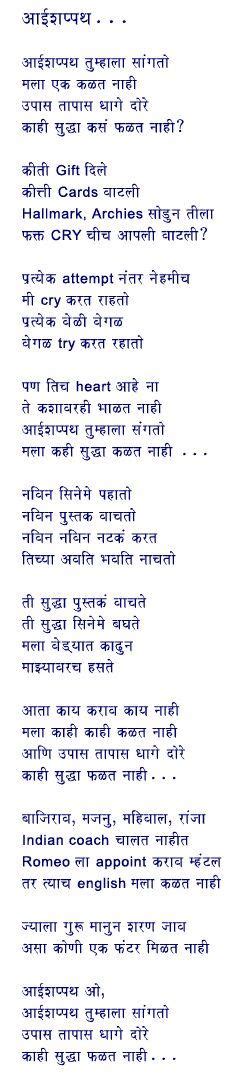 आईशप्पथ . . .
आईशप्पथ तुम्हाला सांगतो
मला एक कळत नाही
उपास तापास धागे दोरे
काही सुद्धा कसं फळत नाही?
कीती Gift दिले
कीत्ती Cards वाटली
Hallmark, Archies सोडुन तीला
फक्त CRY चीच आपली वाटली?
प्रत्येक attempt नंतर नेहमीच
मी cry करत राहतो
प्रत्येक वेळी वेगळ
वेगळ try करत रहातो
पण तिच heart आहे ना
ते कशावरही भाळत नाही
आईशप्पथ तुम्हाला संगतो
मला कही सुद्धा कळत नाही . . .
नविन सिनेमे पहातो
नविन पुस्तक वाचतो
नविन नविन नटकं करत
तिच्या अवति भवति नाचतो
ती सुद्धा पुस्तकं वाचते
ती सुद्धा सिनेमे बघते
मला वेड्यात काढुन
माझ्यावरच हसते
आता काय कराव काय नाही
मला काही काही कळत नाही
आणि उपास तापास धागे दोरे
काही सुद्धा फळत नाही . . .
बाजिराव, मजनु, महिवाल, रांजा
Indian coach चालत नाहीत
Romeo ला appoint कराव म्हंटल
तर त्याच english मला कळत नाही
ज्याला गुरू मानुन शरण जाव
असा कोणी एक फंटर मिळत नाही
आईशप्पथ ओ,
आईशप्पथ तुम्हाला सांगतो
उपास तापास धागे दोरे
काही सुद्धा फळत नाही . . .